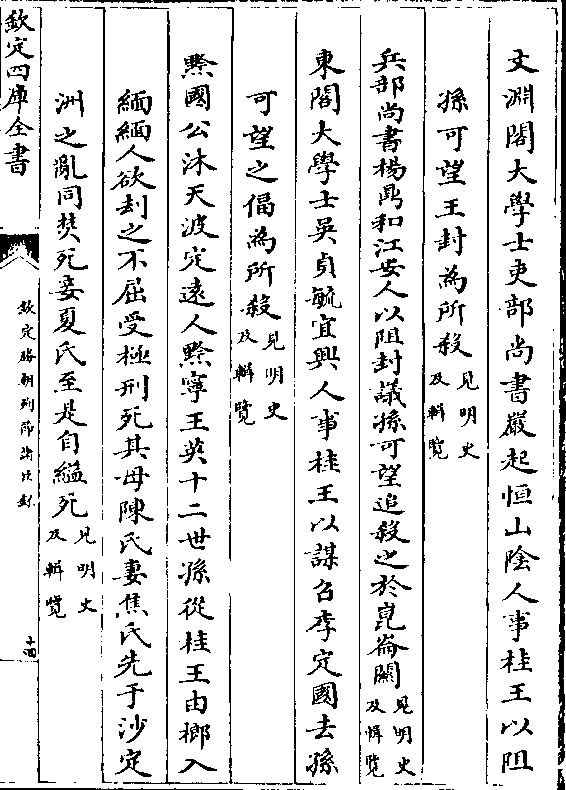 文淵閣大學士吏部尚書嚴起恒山陰人事桂王以阻
孫可望王封為所殺見明史及輯覽
兵部尚書楊鼎和江安人以阻封議孫可望追殺之於崑崙關見明史及輯覽
東閣大學士吳貞毓宜興人事桂王以謀召李定國去孫
可望之偪為所殺見明史及輯覽
黔國公沐天波定遠人黔寧王英十二世孫從桂王由榔入
緬緬人欲刦之不屈受極刑死其母陳氏妻焦氏先于沙定
洲之亂同焚死妾夏氏至是自縊死見明史及輯覽
欽定四庫全書
欽定勝朝殉節諸臣錄
十四